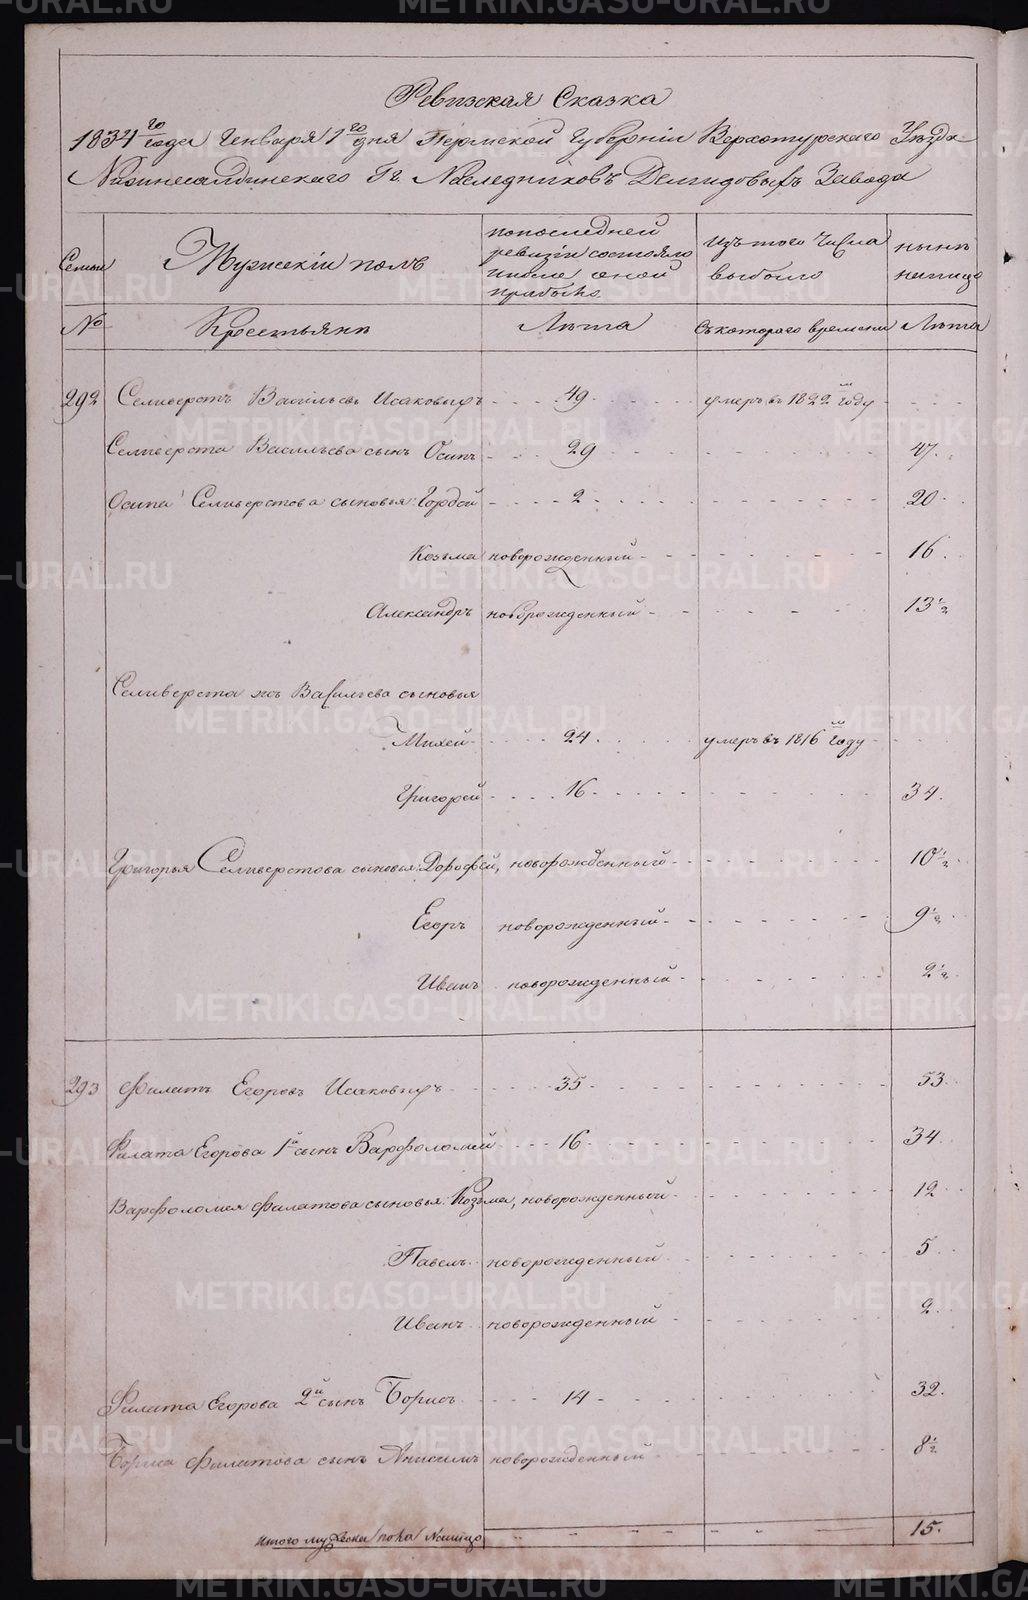 Ревизская Сказка
1834го года Генваря 1го дня Пермской Губернiи Верхотурскаго Уѣзда
Нижнесалдинскаго Гг. Наслѣдниковъ Демидовыхъ Завода
Семьи Мужескiй полъ по последней ревизiи состояло и после оной прибыло Изъ того числа выбыло нынѣ налицо
№ Крестьянъ Лѣта Съ котораго времени Лѣта
292 Селиверстъ Васильевъ Исаковыхъ 49 умеръ въ 1822м году
Селиверста Васильева сынъ Осипъ 29 47.
Осипа Селиверстова сыновья: Гордей 2 20
Козьма новорожденный 16.
Александръ новорожденный 13 1/2
Селиверста жъ Васильева сыновья
Михей 24 умеръ въ 1816м году
Григорей 16 34.
Григорья Селиверстова сыновья: Дорофѣй, новорожденный 10 1/2
Егоръ новорожденный 9 1/2
Иванъ новорожденный 2 1/2
293 Филатъ Егоровъ Исаковыхъ 35 53.
Филата Егорова 1й сынъ Варфоломей 16 34.
Варфоломея Филатова сыновья: Козьма, новорожденный 12
Павелъ новорожденный 5
Иванъ новорожденный 2
Филата Егорова 2й сынъ Борисъ 14 32.
Бориса Филатова сынъ Анисимъ новорожденный 8 1/2
Итого мужеска пола налицо 15.
METRIKI.GASO-URAL.RU